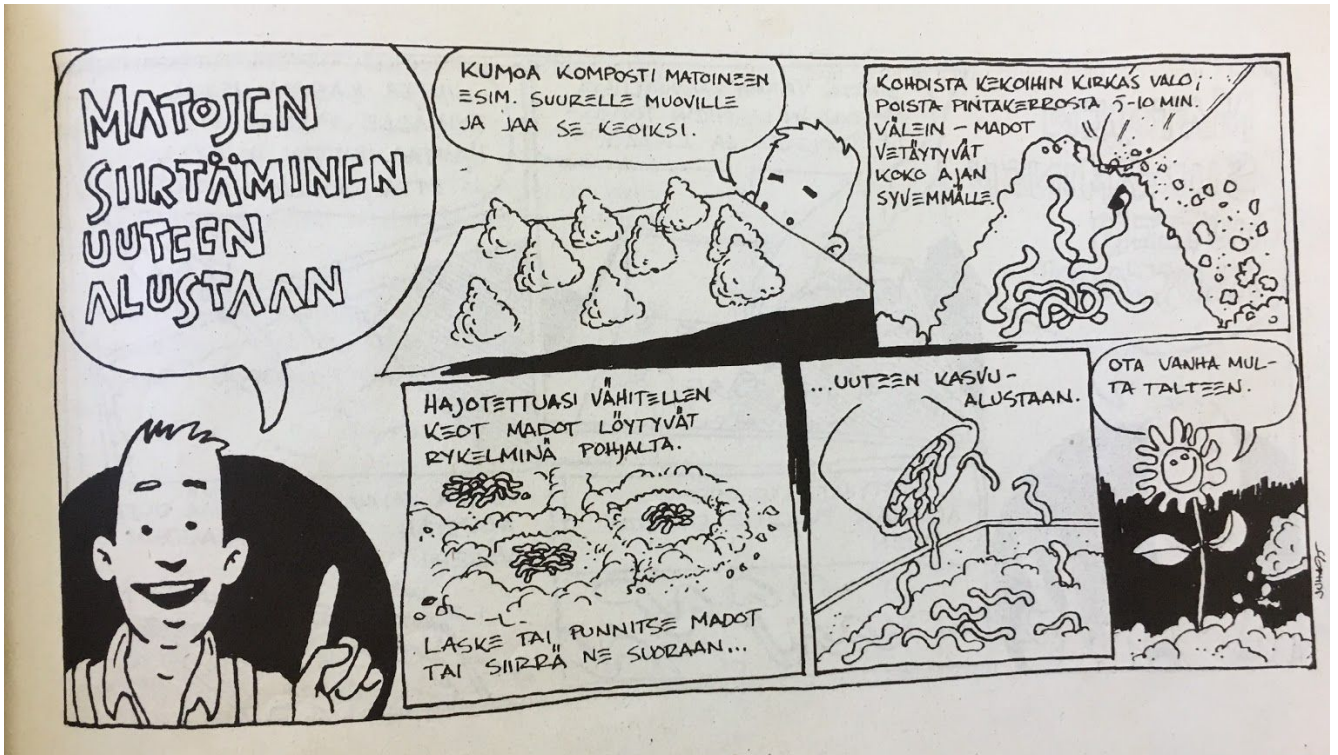 MATOJEN
SIIRTÄMINEN
UUTEEN
ALUSTAAN
KUMOA KOMPOSTI MATOINEEN
ESIM. SUURELLE MUOVILLE
JA JAA SE KEOIKSI.
KOHDISTA KEKOIHIN KIRKAS VALO;
POISTA PINTAKERROSTA 5-10 MIN.
VÄLEIN - MADOT
VETÄYTYVÄT
KOKO AJAN
SYVEMMÄLLE.
HAJOTETTUASI VÄHITELLEN
KEOT MADOT LÖYTYVÄT
RYKELMINÄ POHJALTA.
LASKE TAI PUNNITSE MADOT
TAI SIIRRÄ NE SUORAAN...
...UUTEEN KASVU-
ALUSTAAN.
OTA VANHA MUL-
TA TALTEEN.